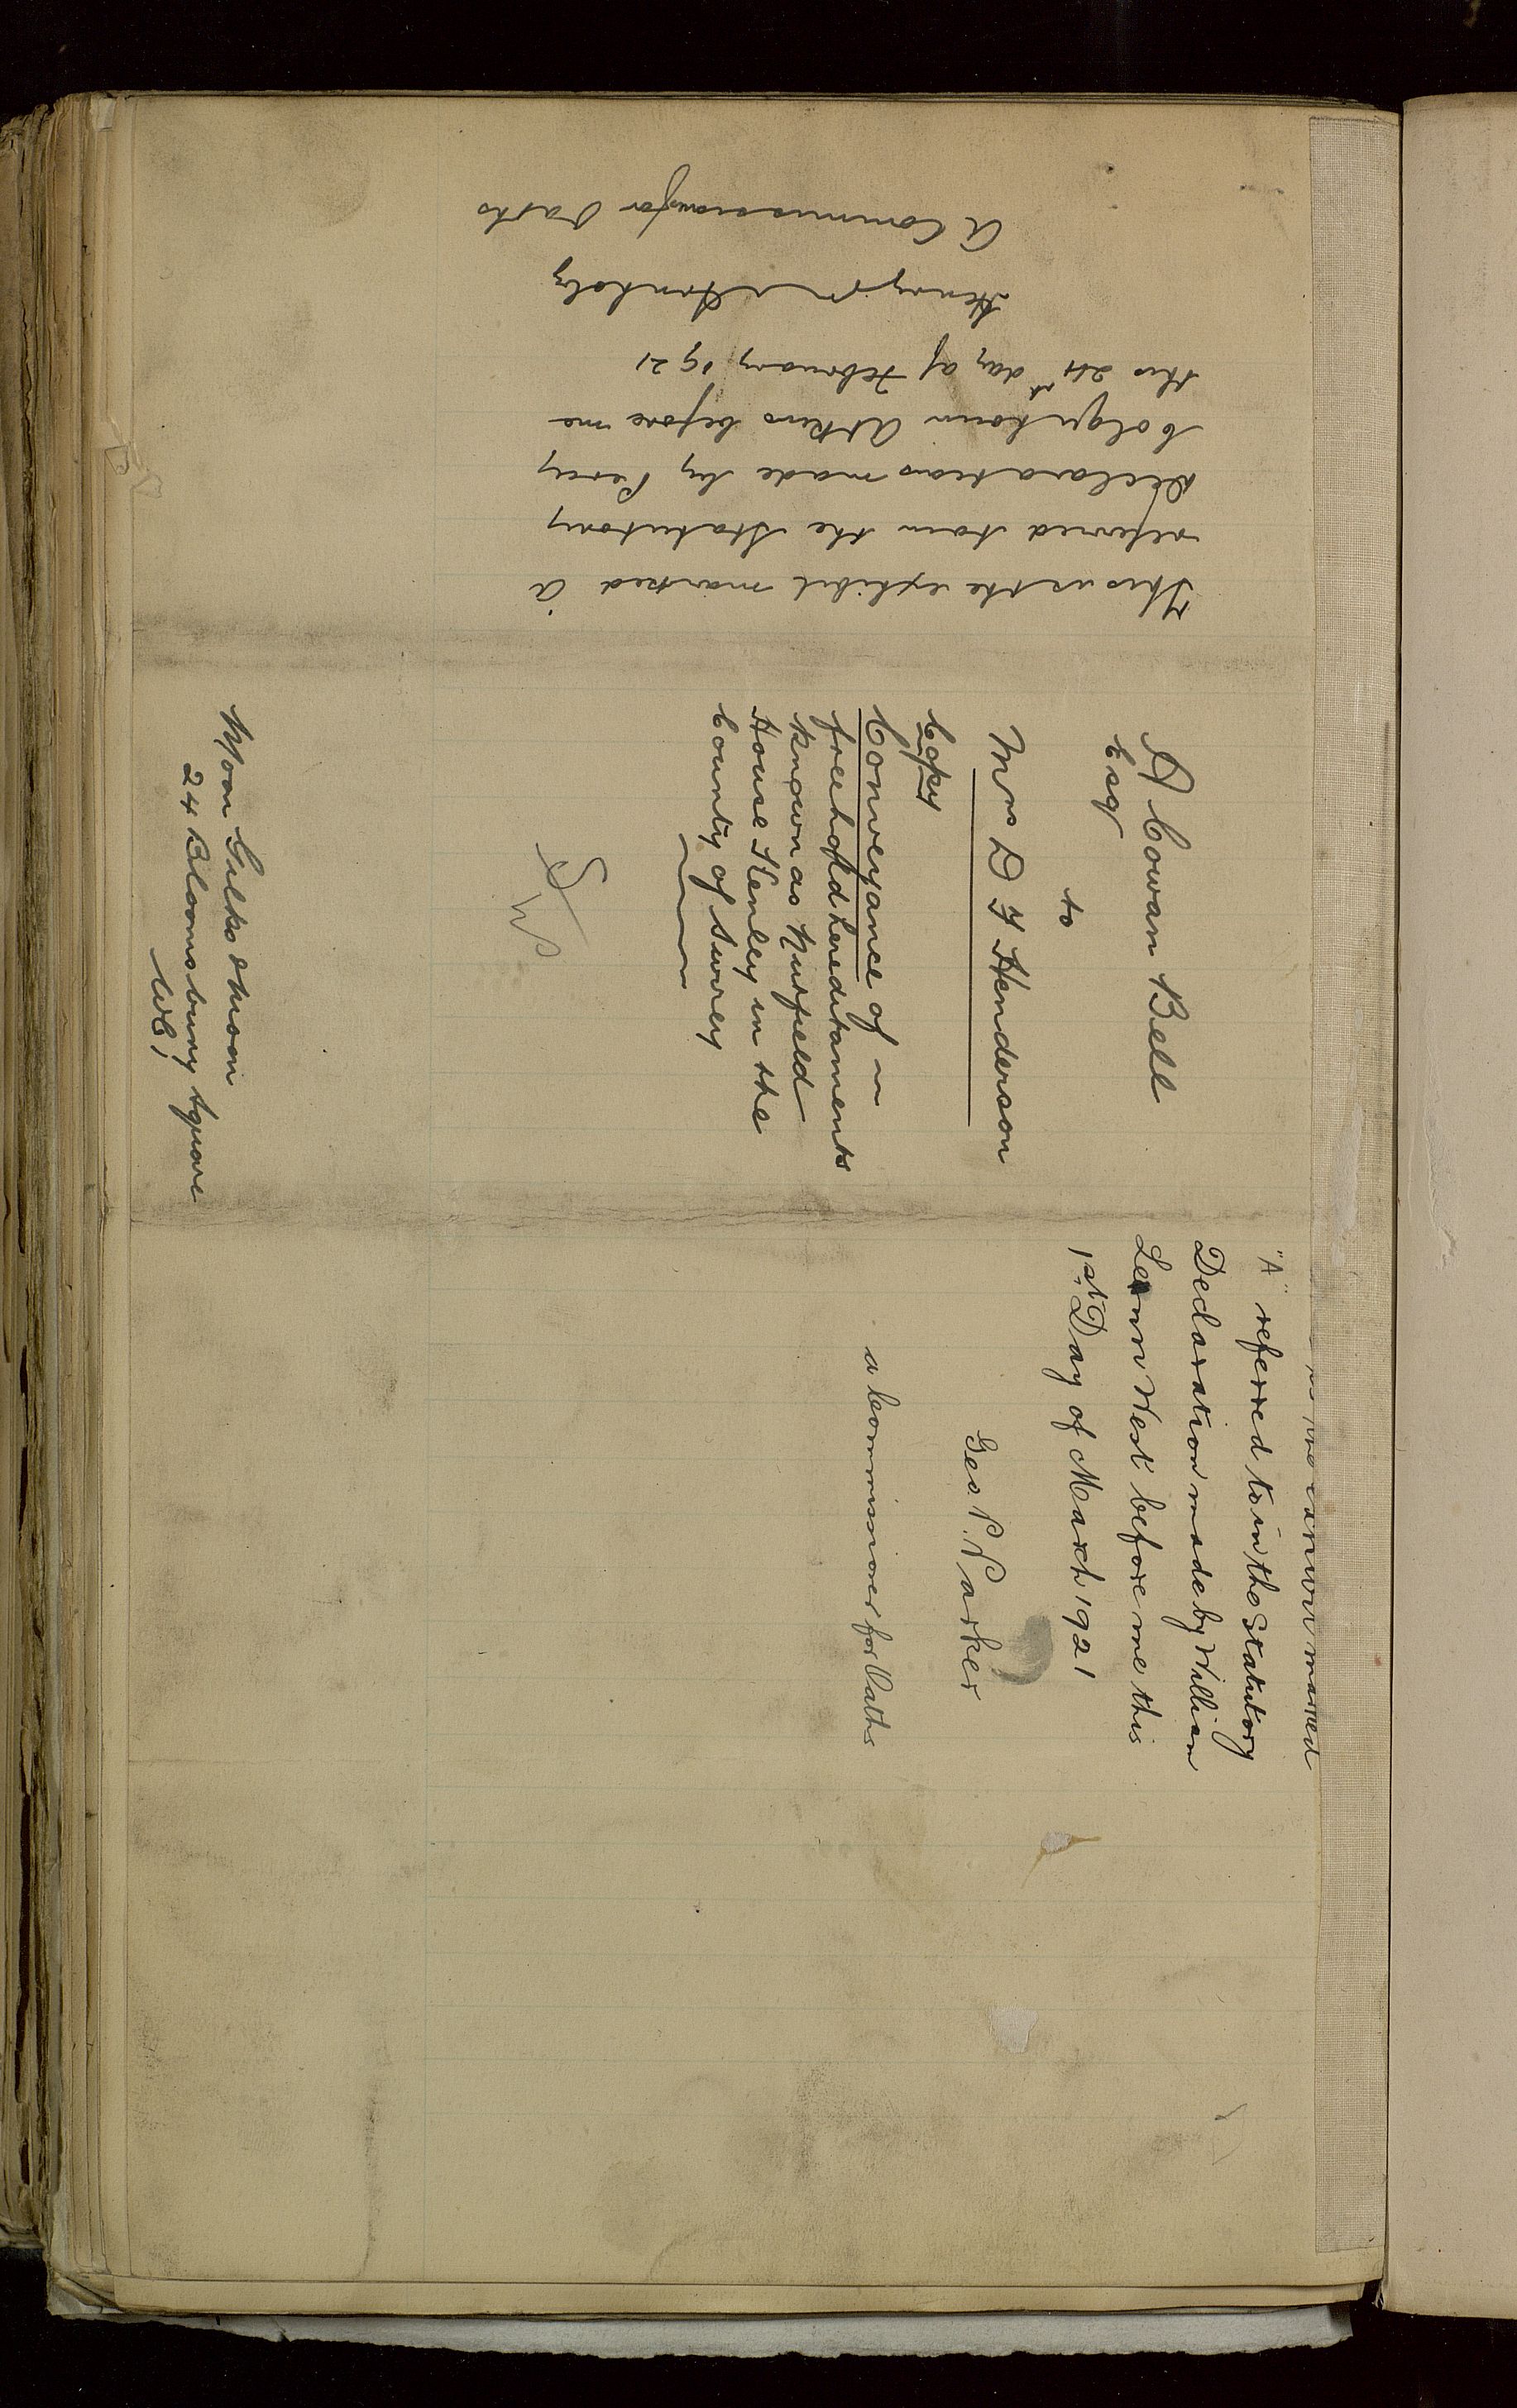 This is the exhibit marked A
referred to in the Statutory
Declaration made by Percy
Colge Louis Atkins before me
this 24th day of February 1921
Henry
A Commissioner for Oaths
A Cowan Bell
Esq
to
Mrs D F Henderson
Copy
Conveyance of
freehold hereditaments
known as Nutfield
House Henley in the
County of Surrey
Moon Gilks & Moon
24 Bloomsbury Square
WC1
marked
"A" referred to in the Statutory
Declaration made by William
Leann West before me this
1st Day of March 1921
Geo. P. Parker
a Commissioner for Oaths